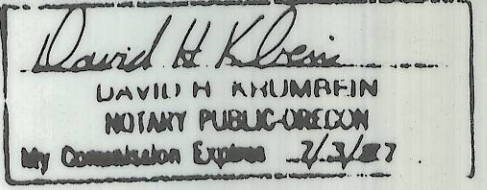 David H
DAVID H KRUMBEIN
NOTARY PUBLIC-OREGON
My Commission Expires